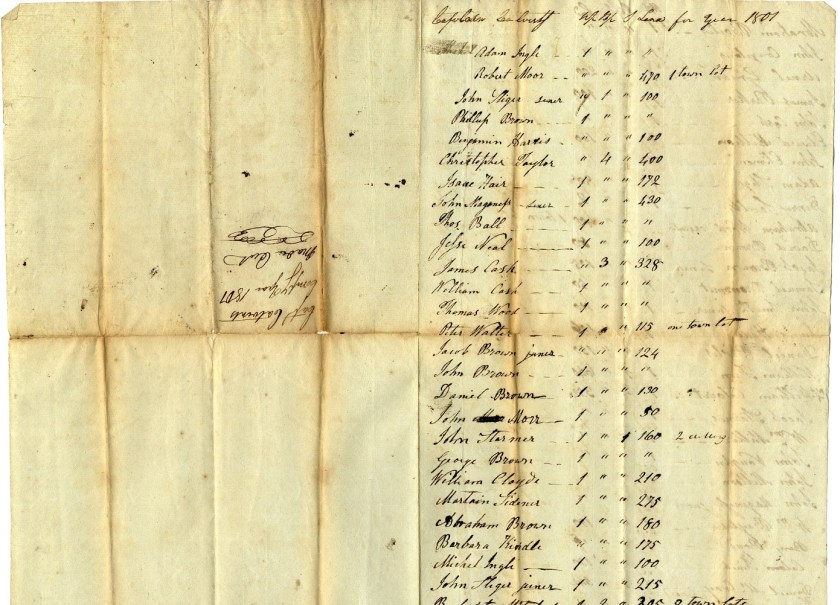 Capt Calverts
Comp'y year 1801
Made Out
Captain Calverts Wp Bp S Land for Year 1801
Adam Ingle - - 1 " " "
Robert Moor - - " " " 470 1 town lot
John Stiger siner 1 " 100
Phillup Brown - - 1 " " "
Benjamin Harris - " " " 100
Christopher Taylor " 4 " 400
Isaac Hair - - - 1 " " 172
John Maganess siner 1 " " 430
Thos Ball - - 1 " " "
Jesse Neal - - - 1 " " 100
James Cash - - " 3 " 328
William Cash - 1 " " "
Thomas Wood - 1 " " "
Peter Walter - - 1 " " 115 one town lot
Jacob Brown juner - " " " 124
John Brown - - 1 " " "
Daniel Brown - 1 " " 130
John Moor - 1 " " 50
John Starmer - - 1 " 1 160 2
George Brown - - 1 " " "
William Cloyde - - 1 " " 210
Martain Sidener 1 " " 275
Abraham Brown 1 " " 180
Barbara Kindle " " " 175
Michel Ingle - - 1 " " 100
John Stiger juner - 1 " " 215
2 " 305 2 town lots